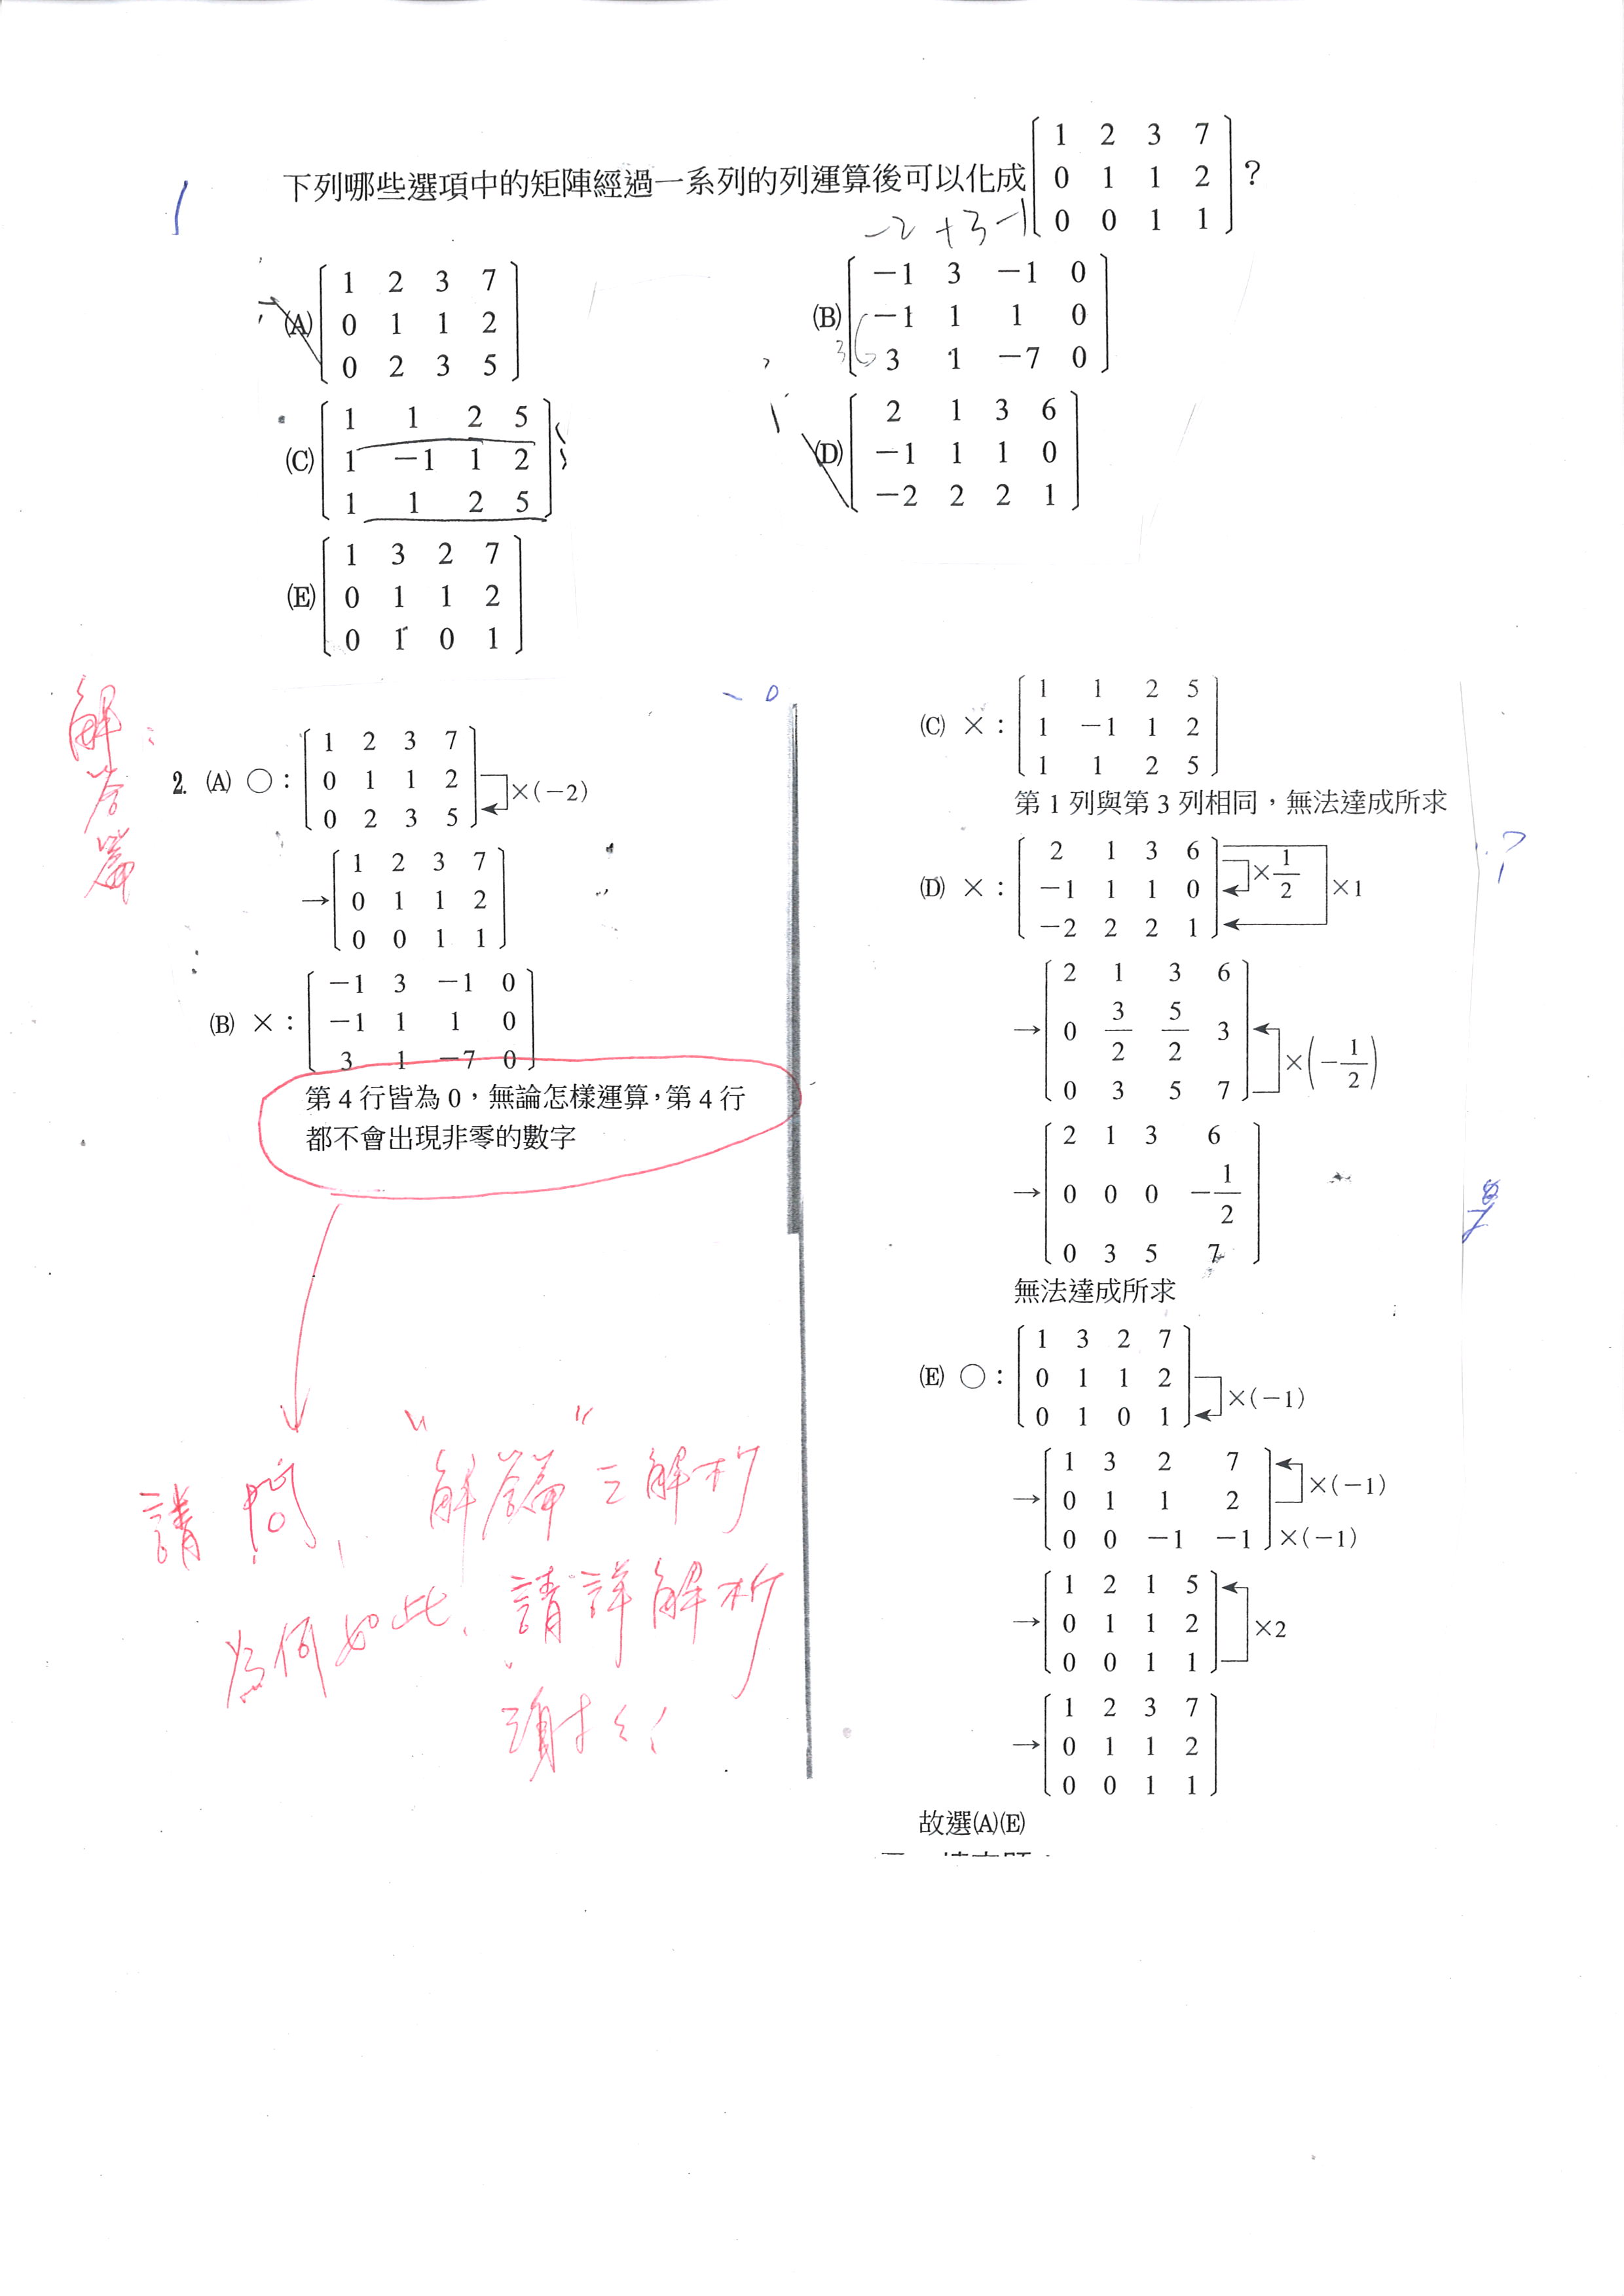 1
下列哪些選項中的矩陣經過一系列的列運算後可以化成 [1 2 3 7; 0 1 1 2; 0 0 1 1]?
-2 +3 -1
(A) [1 2 3 7; 0 1 1 2; 0 2 3 5]
(B) [-1 3 -1 0; -1 1 1 0; 3 1 -7 0]
(C) [1 1 2 5; 1 -1 1 2; 1 1 2 5]
(D) [2 1 3 6; -1 1 1 0; -2 2 2 1]
(E) [1 3 2 7; 0 1 1 2; 0 1 0 1]
解答篇:
2. (A) ○: [1 2 3 7; 0 1 1 2; 0 2 3 5] ×(-2)
→ [1 2 3 7; 0 1 1 2; 0 0 1 1]
(B) ×: [-1 3 -1 0; -1 1 1 0; 3 1 -7 0]
第4行皆為0,無論怎樣運算,第4行
都不會出現非零的數字
請問,"解答篇"之解析
為何如此,請詳解析
謝謝
(C) ×: [1 1 2 5; 1 -1 1 2; 1 1 2 5]
第1列與第3列相同,無法達成所求
(D) ×: [2 1 3 6; -1 1 1 0; -2 2 2 1] ×1/2 ×1
?
→ [2 1 3 6; 0 3/2 5/2 3; 0 3 5 7] ×(-1/2)
→ [2 1 3 6; 0 0 0 -1/2; 0 3 5 7]
無法達成所求
(E) ○: [1 3 2 7; 0 1 1 2; 0 1 0 1] ×(-1)
→ [1 3 2 7; 0 1 1 2; 0 0 -1 -1] ×(-1) ×(-1)
→ [1 2 1 5; 0 1 1 2; 0 0 1 1] ×2
→ [1 2 3 7; 0 1 1 2; 0 0 1 1]
故選(A)(E)